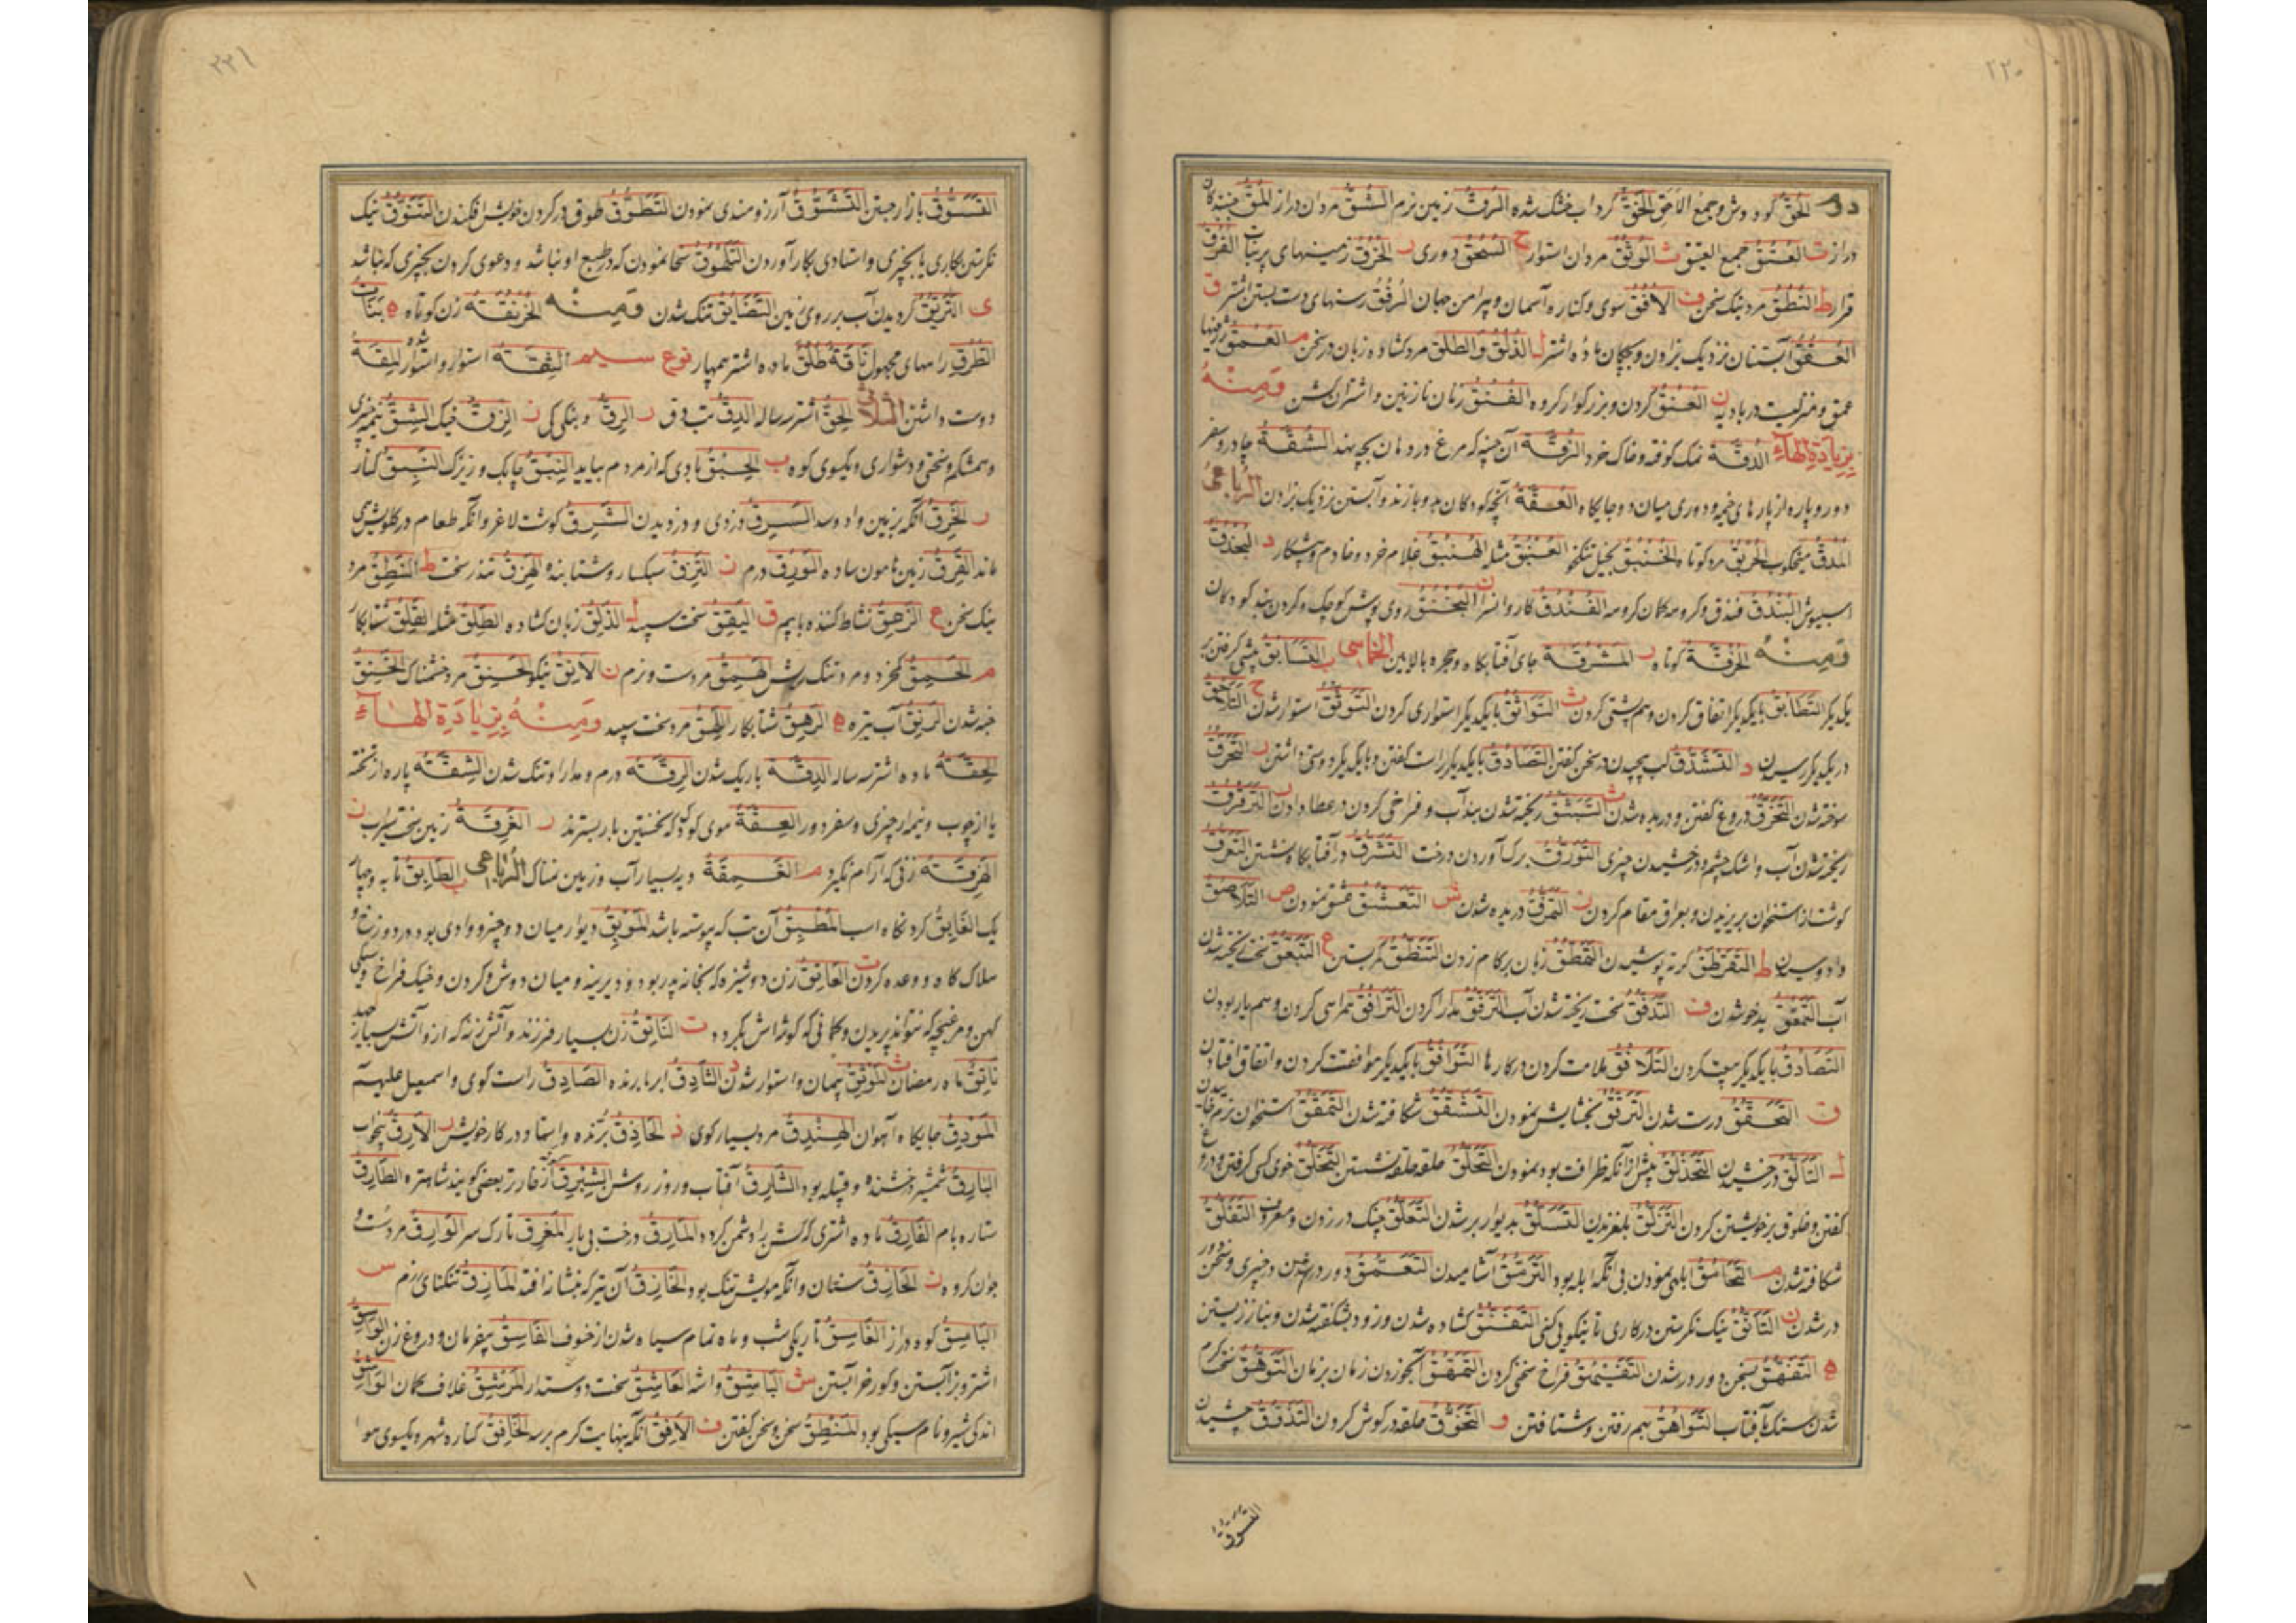 ٢٢٠
الحُقّ کو و دوش و جمع الاَحَقّ الخُقّ کرداب خشک شده الرُّقّ زمین نرم الشُّقّ مردان دراز المُقّ
دراز ت العُتُق جمع العتیق ث الوُثُق مردان استوار ح السُّحُق دوری ر الخُرُق زمینهای پر نبات
قرار ط النُّطُق مرد نیک سخن ف الاُفُق سوی و کناره آسمان و پیرامن جهان الرُّفُق رسنهای دست بستن شتر ق
العُقُق آبستنان نزدیک بزادن و بچکان ماده اشتر ل الذُّلُق والطُّلُق مرد کشاده زبان در سخن م العُمُق
عمق و منزلیست در بادیه ن العُنُق کردن و بزرکوار کروه الفُنُق زنان نازنین و اشتران کشن وَمِنْهُ
بِزِیَادَةِ الهَاءِ الدُّقَّة نمک کوفته و خاک خرد الزُّقَّة آن چینه که مرغ در دهان بچه نهد الشُّقَّة چادر و سفر
دور و پاره از پارهای خیمه و دوری میان دو جایکاه العُقَّة آنچه کودکان بدو بازند و آبستن نزدیک بزادن الرُّبَاعِی
المُدُقّ میخکوب الحُزُقّ مرد کوتاه الخُنبُق بخیل تنکخو العُنبُق مثله الهُنبُق غلام خرد و خادم و پیشکار د
اسبیوش البُندُق فندق و کروهه کمان کروهه الفُندُق کاروانسرا ن البُخنُق روی پوش کوچک و کردن بند کودکان
وَمِنْهُ الحُزُقَّة کوتاه ر المَشرُقَة جای آفتابکاه و حجره بالایین الخماسی ب التَّسَابُق پیشی کرفتن بر
یکدیکر التَّطَابُق با یکدیکر اتفاق کردن و هم پشتی کردن ث التَّوَاثُق با یکدیکر استواری کردن التَّوَثُّق استوار شدن ح التَّلَاحُق
در یکدیکر رسیدن د التَّشَدُّق لب پیچیدن در سخن کفتن التَّصَادُق با یکدیکر راست کفتن و با یکدیکر دوستی داشتن ر التَّحَرُّق
سوخته شدن التَّخَرُّق دروغ کفتن و دریده شدن ث التَّبَثُّق ریخته شدن بند آب و فراخی کردن در عطا دادن ر التَّرَقرُق
ریخته شدن آب و اشک چشم و درخشیدن چیزی التَّوَرُّق برک آوردن درخت التَّشَرُّق در آفتابکاه نشستن التَّعَرُّق
کوشت از استخوان بر بریدن و بعراق مقام کردن ز التَّمَزُّق دریده شدن ش التَّعَشُّق عشق نمودن ص التَّلَاصُق
وا دوسیدن ط التَّقَرطُق کرته پوشیدن التَّمَطُّق زبان بر کام زدن التَّنَطُّق کمر بستن ع التَّبَعُّق سخت ریخته شدن
آب التَّمَعُّق بدخو شدن ف التَّدَفُّق سخت ریخته شدن آب التَّرَفُّق مدارا کردن التَّرَافُق همراهی کردن و هم یار بودن
التَّصَافُق با یکدیکر بیعت کردن التَّلَافُق ملامت کردن در کارها التَّوَافُق با یکدیکر موافقت کردن و اتفاق افتادن
ق التَّحَقُّق درست شدن التَّرَقُّق بخشایش نمودن التَّشَقُّق شکافته شدن التَّمَقُّق استخوان نرم
ل التَّاَلُّق درخشیدن التَّحَذلُق بیش از آنکه ظرافت بود بنمودن التَّحَلُّق حلقه حلقه نشستن التَّخَلُّق خوی کسی کرفتن
کفتن و خلوق بر خویشتن کردن التَّزَلُّق بلغزیدن التَّسَلُّق بدیوار بر شدن التَّعَلُّق چنک در زدن و معروف التَّفَلُّق
شکافته شدن م التَّحَامُق ابلهی نمودن بی آنکه ابله بود التَّرَمُّق آشامیدن التَّعَمُّق دور در شدن در چیزی و سخن
در شدن ن التَّاَنُّق نیک نکرستن در کاری تا نیکویی کنی التَّفَنُّق کشاده شدن ورزود شکفته شدن و بناز زیستن
ه التَّفَهُّق بسخن دور در شدن التَّفَیهُق فراخ سخنی کردن التَّمَهُّق آبخوردن زمان بزمان التَّوَهُّق سخت کرم
شدن سنک بآفتاب التَّوَاهُق بهم رفتن و شتافتن و التَّحَوُّق حلقه در کوش کردن التَّذَوُّق چشیدن
التَّسَوُّق
٢٢١
التَّسَوُّق بازار جستن التَّشَوُّق آرزومندی نمودن التَّطَوُّق طوق در کردن خویش افکندن التَّنَوُّق نیک
نکرستن بکاری یا بچیزی و استادی بکار آوردن التَّلَهوُق سخا نمودن که در طبع او نباشد و دعوی کردن بچیزی که نباشد
ی التَّرَیُّق کردیدن آب بر روی زمین التَّضَایُق تنک شدن وَمِنْهُ الخُرنُقَة زن کوتاه ه بَنَات
الطُّرُق راههای مجهول نَاقَةٌ طُلُقٌ ماده اشتر بی مهار نوع سیم الثِّقَة استوار و استوار شدن المِقَة
دوست داشتن الثلاثی الحِقّ اشتر سه ساله الدِّقّ تب دق ر الرِّقّ و بنکی کی ز الزِّقّ خیک الشِّقّ نیمه چیزی
و همشکم و سختی و دشواری و یکسوی کوه ب الحَبِق بادی که از مردم بیاید اللَّبِق چابک و زیرک النَّبِق کنار
ر الخَرِق آنکه بزمین وا دوسد السَّرِق دزدی و دزدیدن الشَّرِق کوشت لاغر و آنکه طعام در کلویش
ماند القَرِق زمین هامون ساده الوَرِق درم ز النَّزِق سبکسار و شتابنده الهَزِق تندر سخت ط النَّطِق مرد
نیک سخن ع الزَّعِق نشاط کننده با بیم ق الیَقِق سخت سپید ل الذَّلِق زبان کشاده الطَّلِق مثله القَلِق شتابکار
م الحَمِق کم خرد و مرد تنک ریش الهَمِق مرد ست و نرم ن الاَنِق نیکو الحَنِق مرد خشمناک الخَنِق
خبه شدن الرَّنِق آب تیره ه الرَّهِق شتابکار اللَّهِق مرد سخت سپید وَمِنْهُ بِزِیَادَةِ الهَاءِ
الحِقَّة ماده اشتر سه ساله الدِّقَّة باریک شدن الرِّقَّة درم و مدارا و تنک شدن الشِّقَّة پاره از تخته
یا از چوب و نیمه از چیزی و سفر دور العِقَّة موی کودک که نخستین بار بسترند ر الغَرِقَة زمین سخت سیراب ز
الهَزِقَة زنی که آرام نکیرد م الغَمِقَة دیه بسیار آب و زمین نمناک الرُّبَاعِی ب الطَّابِق تابه و چهار
یک الغَابِق کرد نکاه اسب المُطبِق آن تب که پیوسته باشد المَوبِق دیوار میان دو چیز و وادی بود در دوزخ و
هلاک کاه و وعده کردن ت العَاتِق زن دوشیزه که بخانه پدر بود و دیرینه و میان دوش و کردن و خیک فراخ
کهن و مرغ بچه که نتواند پریدن و کمانی که کوشه اش بکردد ت النَّاتِق زن بسیار فرزند و آتش زنه که ازو آتش بسیار جهد
نَاتِق ماه رمضان ث المَوثِق پیمان و استوار شدن د الثَّادِق ابر بارنده الصَّادِق راست کوی و اسمعیل علیه
المَودِق جایکاه آهوان الهِندِق مرد بسیار کوی ذ الحَاذِق برنده و استاد در کار خویش ر الاَرِق بیخواب
البَارِق شمشیر درخشنده و قبیله بود الشَّارِق آفتاب و روز روشن الشِّبرِق از قارر بعضی کویند شاهتره الطَّارِق
ستاره بام الفَارِق ماده اشتری که کشن را دشمن کیرد المَارِق درخت بی بار المَفرِق تارک سر الوَارِق مرد ست و
جوان کروه ز الحَازِق سنعان و آنکه موزه ش تنک بود الخَازِق آن تیر که بنشانه افتد المَازِق تنکنای رزم س
البَاسِق کوه دراز الغَاسِق تاریکی شب و ماه تمام سیاه شدن از خسوف الفَاسِق بیفرمان و دروغ زن الوَاسِق
اشتر و بز آبستن و کورخر آبستن ش البَاشِق واشه العَاشِق سخت دوستدار المُرشِق غلاف کمان الوَاشِق
اندکی شیر و نام سیکی بود المَنطِق سخن و سخن کفتن ف الاَفِق آنکه بنهایت کرم برسد الخَافِق کناره شهر و یکسوی هوا